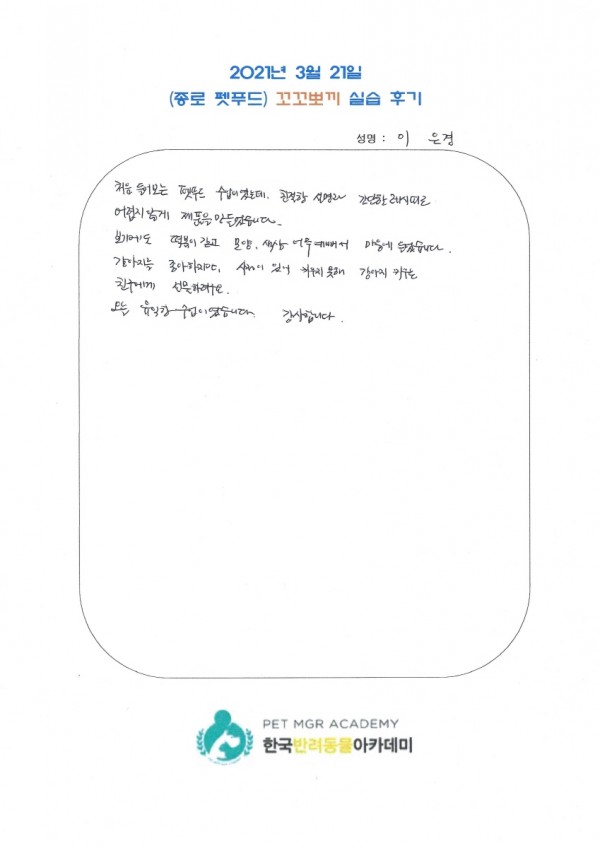 2021년 3월 21일
(종로 펫푸드) 꼬꼬뽀끼 실습 후기
성명 : 이 은경
처음 들어보는 펫푸드 수업이었는데, 친절한 설명과 간단한 레시피로
어렵지 않게 제품을 만들었습니다.
보기에도 떡볶이 같고 모양, 색상 너무 예뻐서 마음에 들었습니다.
강아지는 좋아하지만, 키우지 못해 강아지 키우는
친구에게 선물하려구요.
오늘 유익한 수업이었습니다. 감사합니다.
PET MGR ACADEMY
한국반려동물아카데미